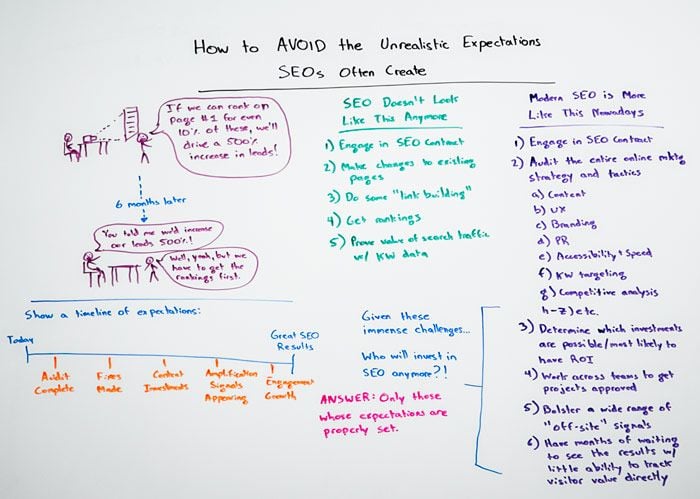 How to AVOID the Unrealistic Expectations
SEOs Often Create
If we can rank on
page #1 for even
10% of these, we'll
drive a 500%
increase in leads!
6 months later
You told me we'd increase
our leads 500%!
Well, yeah, but we
have to get the
rankings first.
SEO Doesn't Look
Like This Anymore
1) Engage in SEO Contract
2) Make changes to existing
pages
3) Do some "link building"
4) Get rankings
5) Prove value of search traffic
w/ KW data
Modern SEO is More
Like This Nowadays
1) Engage in SEO Contract
2) Audit the entire online mktg
strategy and tactics
a) Content
b) UX
c) Branding
d) PR
e) Accessibility + Speed
f) KW targeting
g) Competitive analysis
h-z) etc.
3) Determine which investments
are possible/most likely to
have ROI
4) Work across teams to get
projects approved
5) Bolster a wide range of
"off-site" signals
6) Have months of waiting
to see the results w/
little ability to track
visitor value directly
Show a timeline of expectations:
Today
Great SEO
Results
Audit
Complete
Fixes
Made
Content
Investments
Amplification
Signals
Appearing
Engagement
Growth
Given these
immense challenges...
Who will invest in
SEO anymore?!
ANSWER: Only those
whose expectations are
properly set.